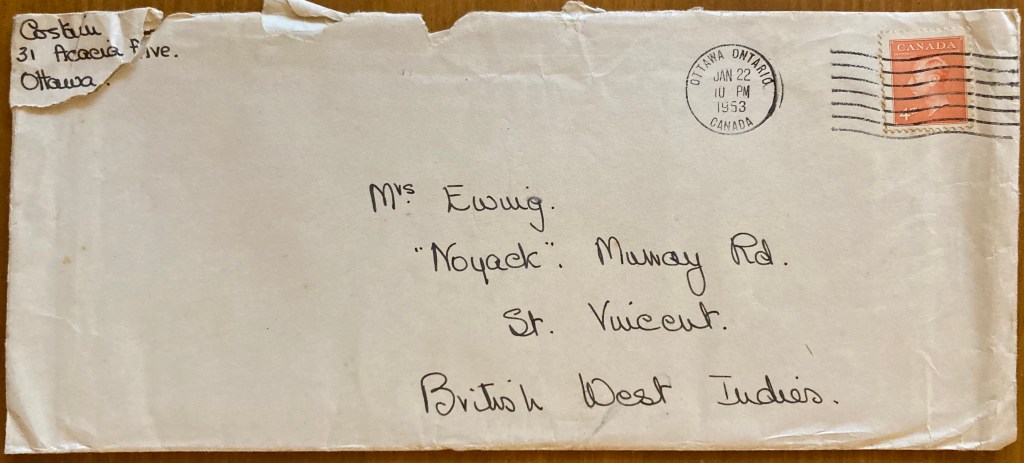 Costain
31 Acacia Ave.
Ottawa.
OTTAWA ONTARIO
JAN 22
10 PM
1953
CANADA
CANADA
4
Mrs. Ewing.
"Noyack". Murray Rd.
St. Vincent.
British West Indies.